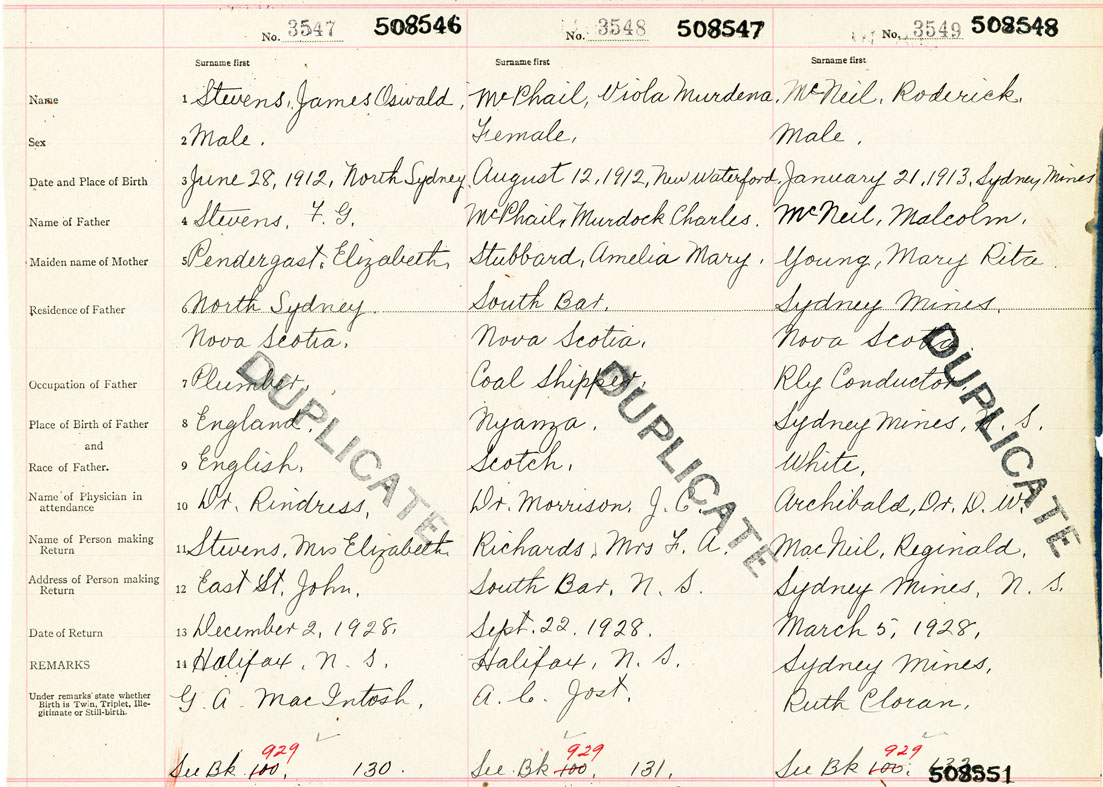 No. 3547 508546 No. 3548 508547 No. 3549 508548
Surname first Surname first Surname first
Name 1 Stevens, James Oswald, McPhail, Viola Murdena, McNeil, Roderick.
Sex 2 Male. Female. Male.
Date and Place of Birth 3 June 28, 1912, North Sydney. August 12, 1912, New Waterford. January 21, 1913, Sydney Mines
Name of Father 4 Stevens, F. G. McPhail, Murdock Charles. McNeil, Malcolm.
Maiden name of Mother 5 Pendergast, Elizabeth, Stubbard, Amelia Mary. Young, Mary Rita
Residence of Father 6 North Sydney. South Bar, Sydney Mines.
Nova Scotia. Nova Scotia. Nova Scotia.
Occupation of Father 7 Plumber, Coal Shipper. Rly Conductor
Place of Birth of Father 8 England. Nyanza. Sydney Mines, N. S.
and
Race of Father. 9 English. Scotch. White,
Name of Physician in
attendance 10 Dr. Rindress, Dr. Morrison, J. C. Archibald, Dr. D. W.
Name of Person making
Return 11 Stevens, Mrs Elizabeth Richards, Mrs F. A. MacNeil, Reginald.
Address of Person making
Return 12 East St. John. South Bar, N. S. Sydney Mines, N. S.
Date of Return 13 December 2, 1928. Sept. 22. 1928. March 5, 1928,
REMARKS 14 Halifax, N. S. Halifax, N. S. Sydney Mines,
Under remarks state whether
Birth is Twin, Triplet, Ille-
gitimate or Still-birth. G. A. MacIntosh, A. C. Jost. Ruth Cloran,
DUPLICATE DUPLICATE DUPLICATE
929 929 929
See Bk 100, 130. See Bk 100, 131, See Bk 100.
508551